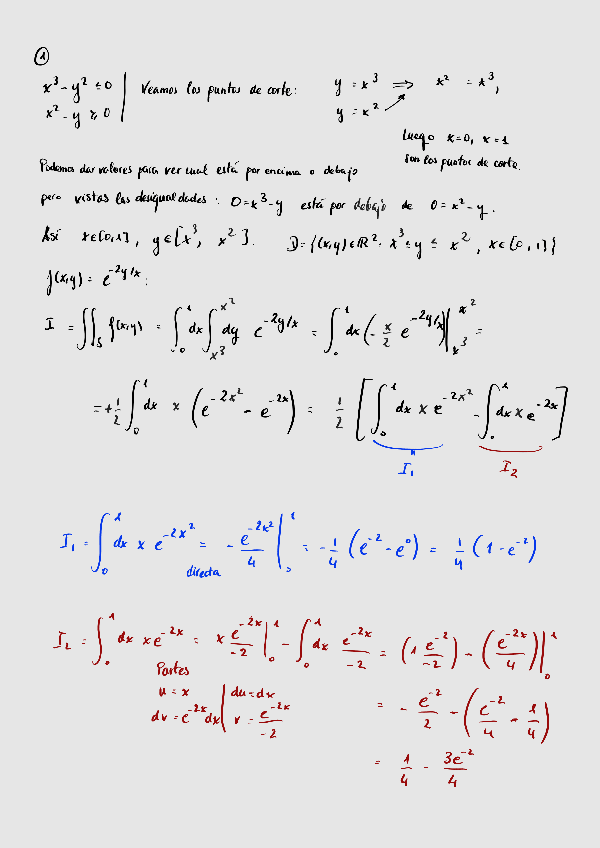 1
x³ - y² ≤ 0 | Veamos los puntos de corte: y = x³ ⇒ x² = x³,
x² - y ≥ 0 | y = x²
Luego x=0, x=1
son los puntos de corte.
Podemos dar valores para ver cual está por encima o debajo
pero vistas las desigualdades: 0=x³-y está por debajo de 0=x²-y.
Así x∈[0,1], y∈[x³, x²]. D={(x,y)∈ℝ²: x³≤y≤x², x∈[0,1]}
f(x,y) = e^{-2y/x}:
I = ∬_S f(x,y) = ∫_0^1 dx ∫_{x³}^{x²} dy e^{-2y/x} = ∫_0^1 dx (-x/2 e^{-2y/x})|_{x³}^{x²} =
= +1/2 ∫_0^1 dx x (e^{-2x²} - e^{-2x}) = 1/2 [∫_0^1 dx x e^{-2x²} - ∫_0^1 dx x e^{-2x}]
I₁ I₂
I₁ = ∫_0^1 dx x e^{-2x²} = -e^{-2x²}/4 |_0^1 = -1/4 (e^{-2} - e^0) = 1/4 (1 - e^{-2})
directa
I₂ = ∫_0^1 dx x e^{-2x} = x e^{-2x}/-2 |_0^1 - ∫_0^1 dx e^{-2x}/-2 = (1 e^{-2}/-2) - (e^{-2x}/4)|_0^1
Partes
u = x | du = dx = -e^{-2}/2 - (e^{-2}/4 - 1/4)
dv = e^{-2x} dx | v = e^{-2x}/-2
= 1/4 - 3e^{-2}/4